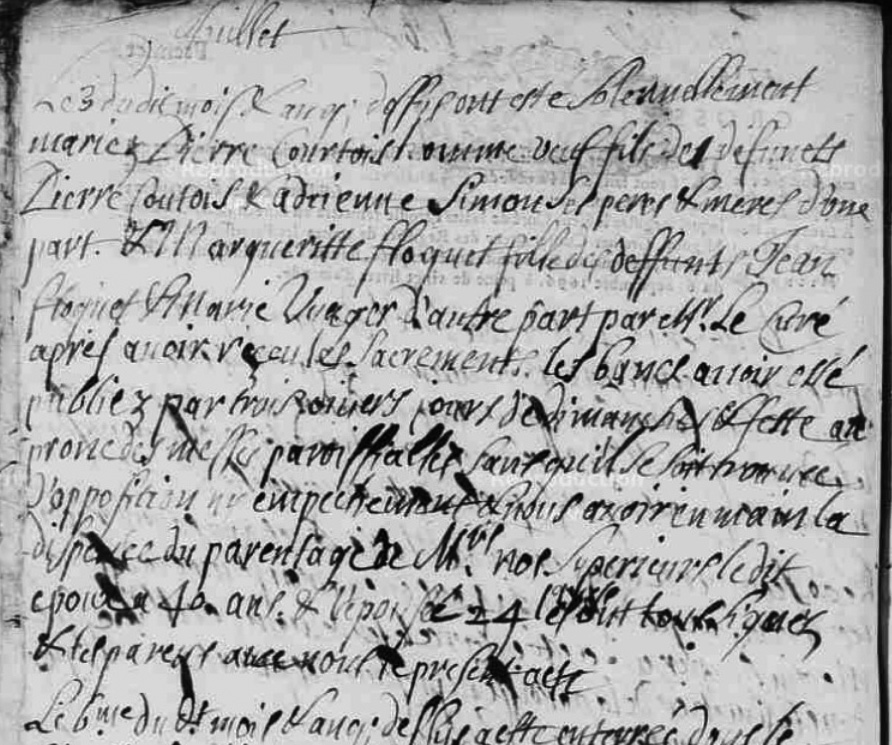 Juillet
Le 3 dudit mois & an qi dessus ont esté solennellement
mariez Pierre Courtois homme veuf fils des defuncts
Pierre Coutois & adrienne Simon ses peres & meres d'une
part. & Margueritte floquet fille des deffunts Jean
floquet & Marie Vuager d'autre part par Mr. Le Curé
apres auoir receu les sacrements. les bancs auoir esté
publiez par trois divers jours de dimanches & feste au
prone des messes paroissialles sans qu'il se soit trouuee
d'opposition ny empechement & nous auoir en main la
dispence du parentage de Mrs. nos superieurs ledit
epoux a 40 ans. & l'epousee 24 ont tous signez
& les parens auec nous le present acte
Le 6me du dt mois & an qi dessus a esté enterré dans le